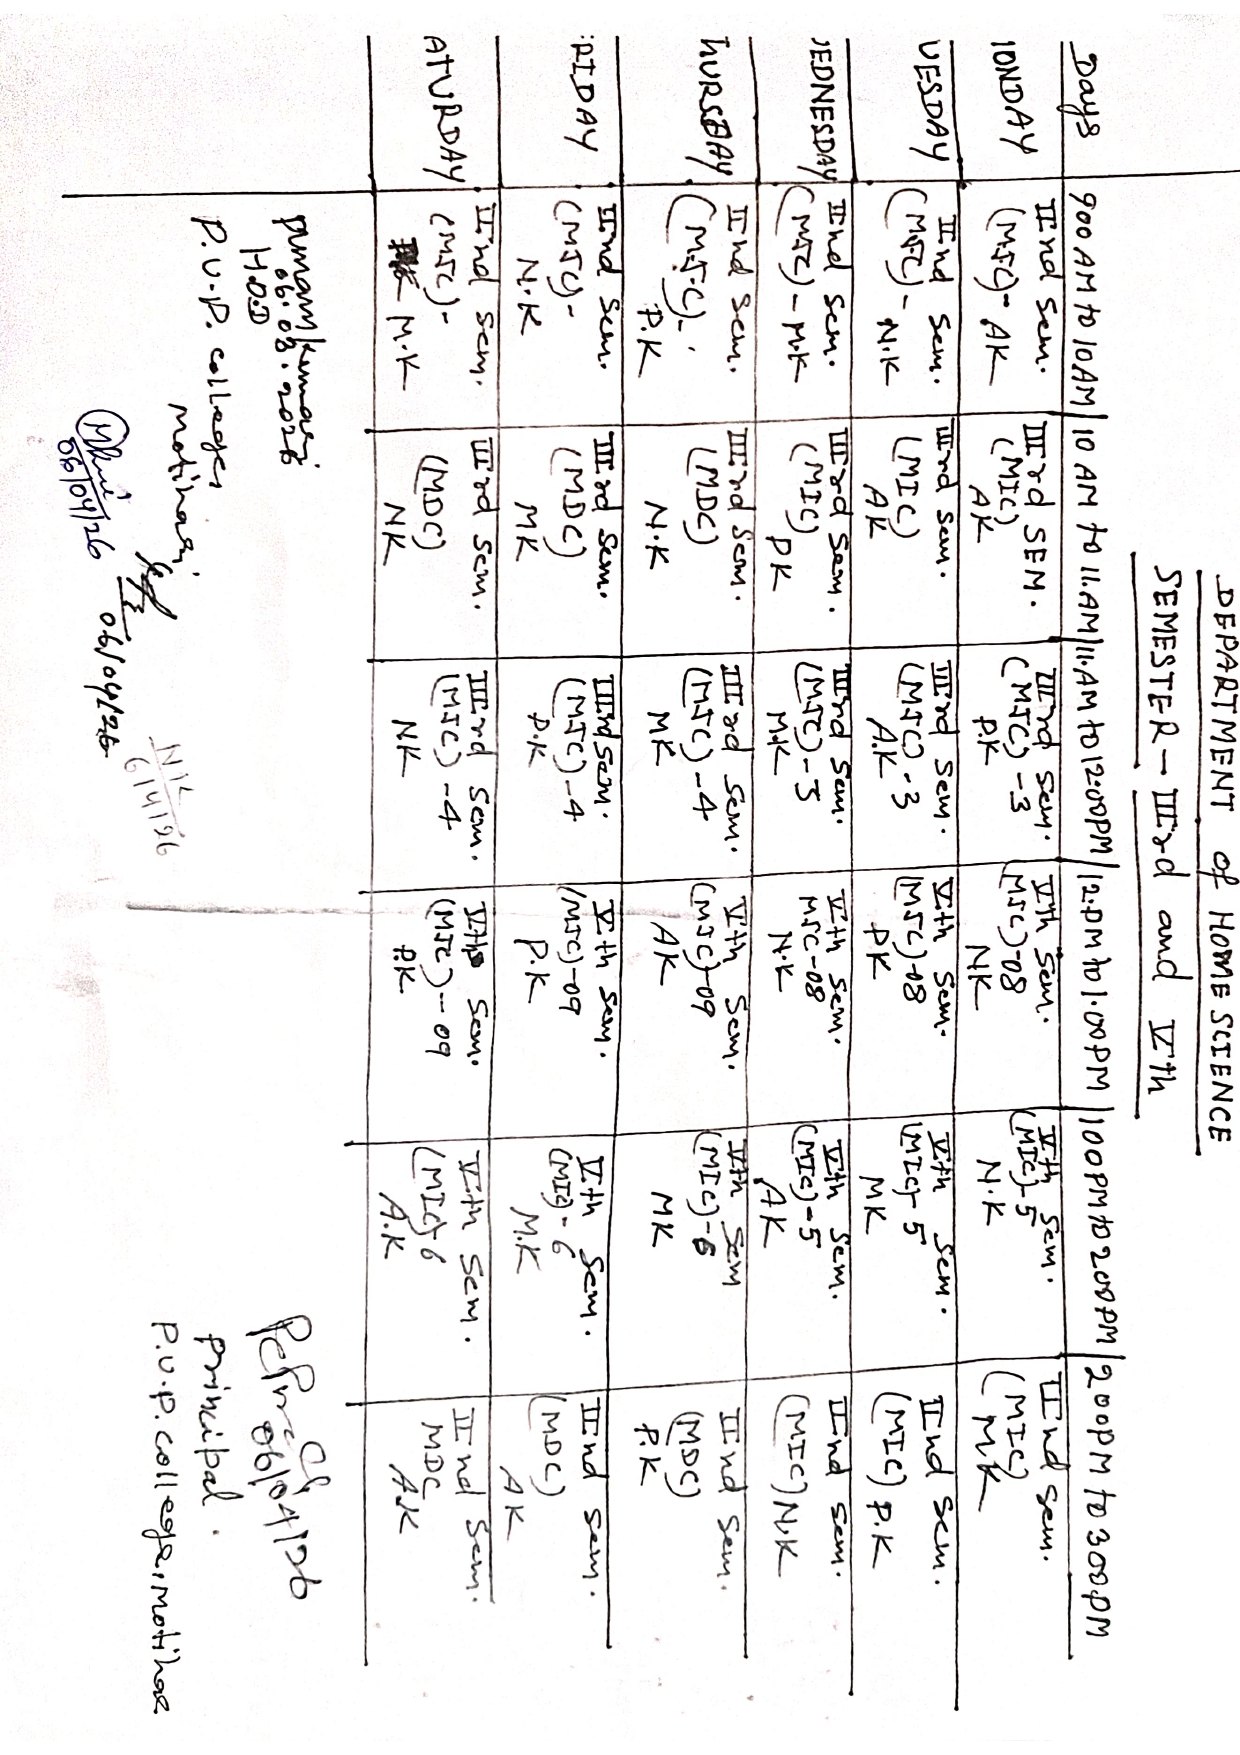 DEPARTMENT of HOME SCIENCE
SEMESTER - IIIrd and Vth
Days | 900 AM to 10AM | 10 AM to 11.AM | 11.AM to 12:00PM | 12.PM to 1.00PM | 100PM to 200PM | 200PM to 300PM
IONDAY | IInd Sem. | IIIrd SEM. | IIIrd Sem. | Vth Sem. | Vth Sem. | IInd Sem.
(MJC)- AK | (MIC) | (MJC)-3 | (MJC)-08 | (MIC)-5 | (MIC)
AK | P.K | NK | N.K | MK
UESDAY | IInd Sem. | IIIrd Sem. | IIIrd Sem. | Vth Sem. | Vth Sem. | IInd Sem.
(MJC)- | (MIC) | (MJC)-3 | (MJC)-08 | (MIC)-5 | (MIC) P.K
N.K | AK | A.K | PK | MK
EDNESDAY | IInd Sem. | IIIrd Sem. | IIIrd Sem. | Vth Sem. | Vth Sem. | IInd Sem.
(MJC)-M.K | (MIC) | (MJC)-3 | MJC-08 | (MIC)-5 | (MIC) N.K
PK | M.K | N.K | AK
HURSDAY | IInd Sem. | IIIrd Sem. | IIIrd Sem. | Vth Sem. | Vth Sem | IInd Sem.
(MJ.C)- | (MDC) | (MJC)-4 | (MJC)-09 | (MIC)-6 | (MDC)
P.K | N.K | MK | AK | MK | P.K
RIDAY | IInd Sem. | IIIrd Sem. | IIIrd Sem. | Vth Sem. | Vth Sem. | IInd Sem.
(MJC)- | (MDC) | (MJC)-4 | (MJC)-09 | (MIC)-6 | (MDC)
N.K | MK | P.K | P.K | M.K | AK
ATURDAY | IInd Sem. | IIIrd Sem. | IIIrd Sem. | Vth Sem. | Vth Sem. | IInd Sem.
(MJC)- | (MDC) | (MJC)-4 | (MJC)-09 | (MIC)-6 | MDC
M.K | NK | NK | P.K | A.K | A.K
Punam Kumari
06.08.2026
H.O.D
P.U.P. college,
motihari
06/04/26
06/04/26
NK
6/4/26
06/04/26
Principal.
P.U.P. college, motihar